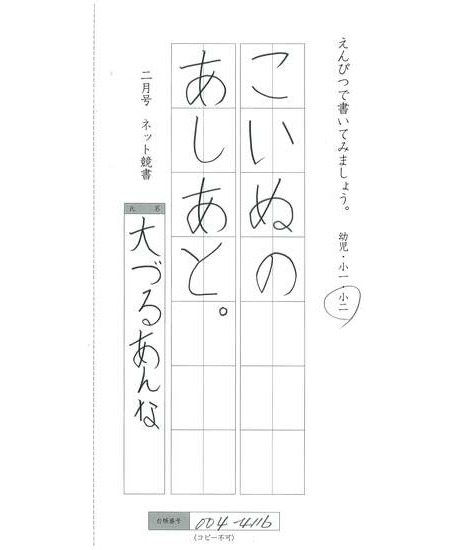 えんぴつで書いてみましょう。 幼児・小一・小二
こいぬの
あしあと。
二月号 ネット競書
氏名
大づるあんな
台帳番号 004-4116
(コピー不可)